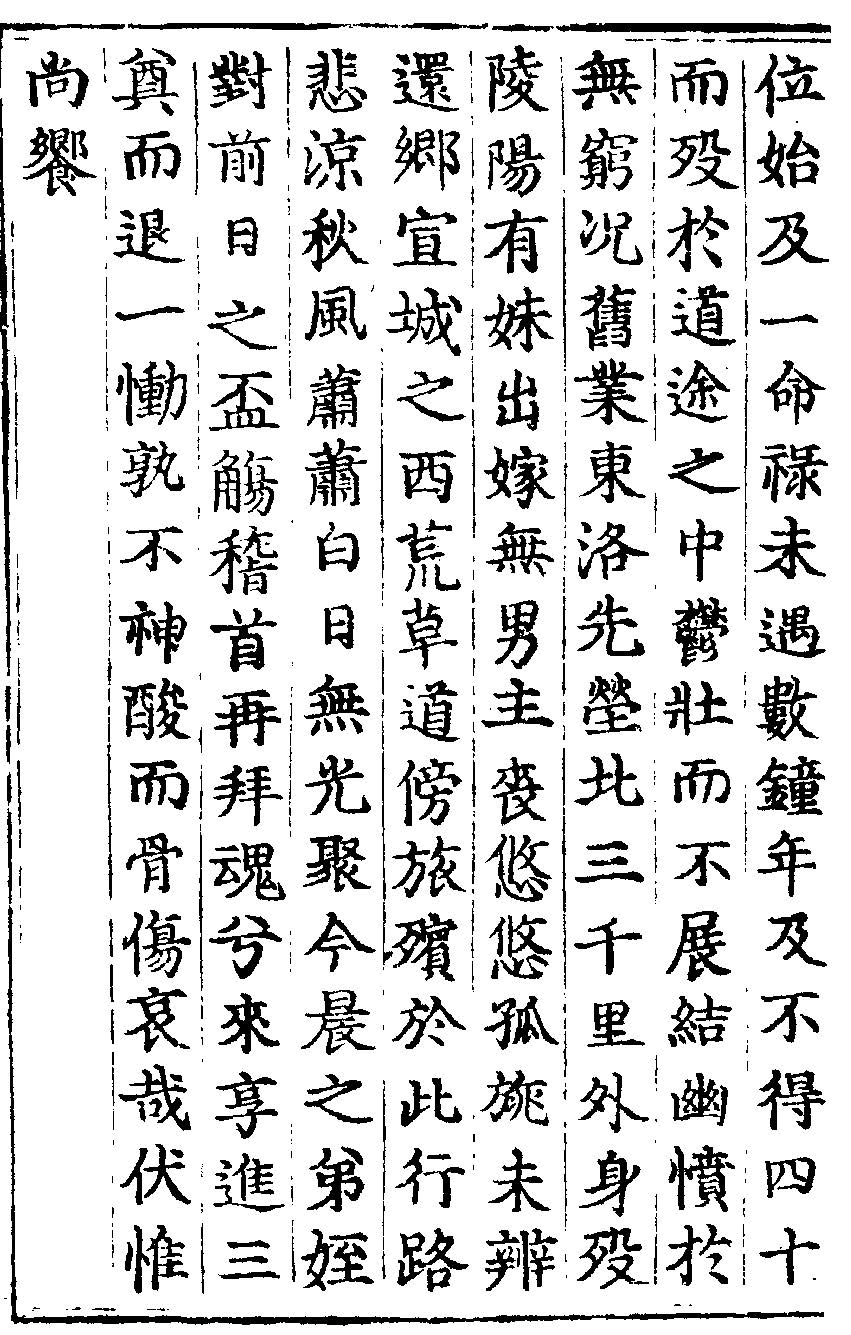 位始及一命祿未過數鐘年及不得四十
而歿於道途之中鬱壯而不展結幽憤於
無窮况舊業東洛先塋北三千里外身歿
陵陽有妹出嫁無男主喪悠悠孤旐未辨
還鄉宣城之西荒草道傍旅殯於此行路
悲涼秋風蕭蕭白日無光聚今晨之弟姪
對前日之盃觴稽首再拜魂兮來享進三
奠而退一慟孰不神酸而骨傷哀哉伏惟
尚饗